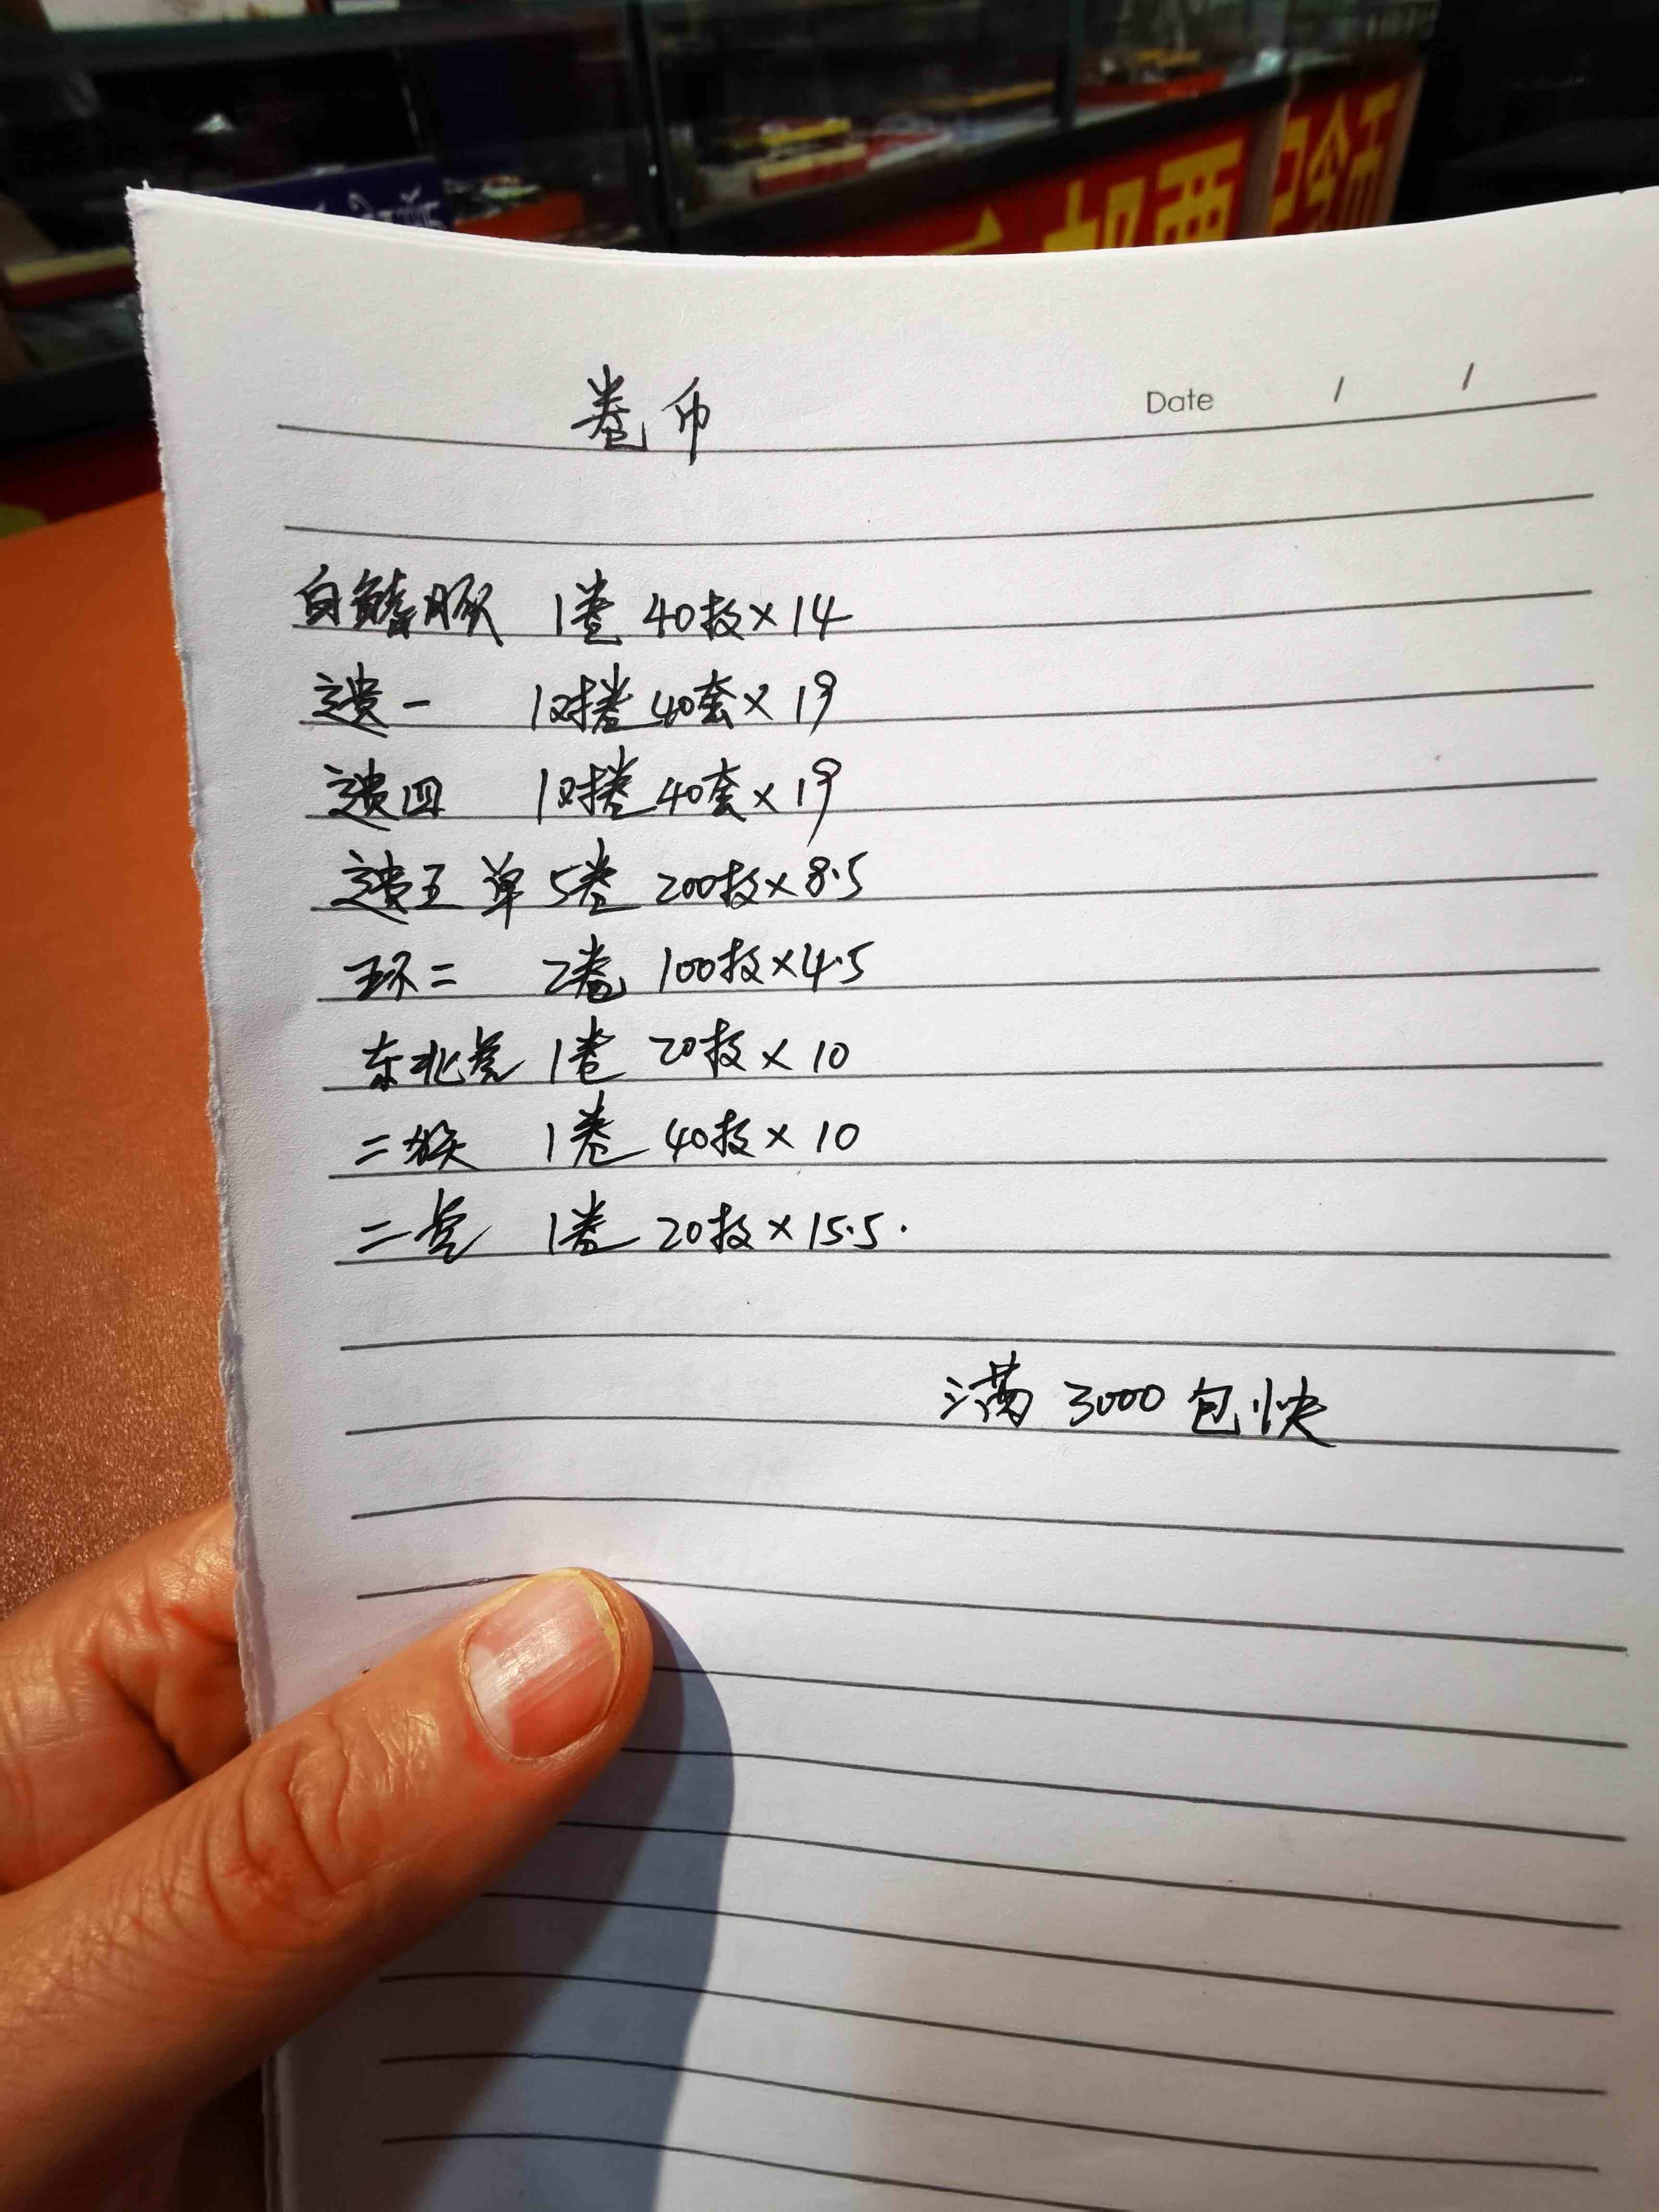 邮票
纪念币
Date / /
卷币
白鳍豚 1卷 40枚×14
遗一 1对卷 40套×19
遗四 1对卷 40套×19
遗五 单 5卷 200枚×8.5
环二 2卷 100枚×4.5
东北虎 1卷 20枚×10
二猴 1卷 40枚×10
二虎 1卷 20枚×15.5.
满 3000 包快